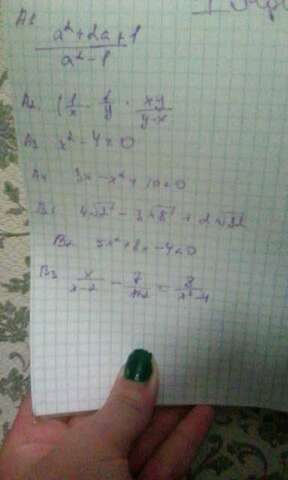 A1
(a²+2a+1)/(a²-1)
A2 (1/x - 1/y · xy/(y-x)
A3 x² - 4 > 0
A4 3x - x² + 10 < 0
B1 4√2 - 3√8 + 2√32
B2 5x² + 8x - 4 < 0
B3 x/(x-2) - 7/(x+2) = 8/(x²-4)